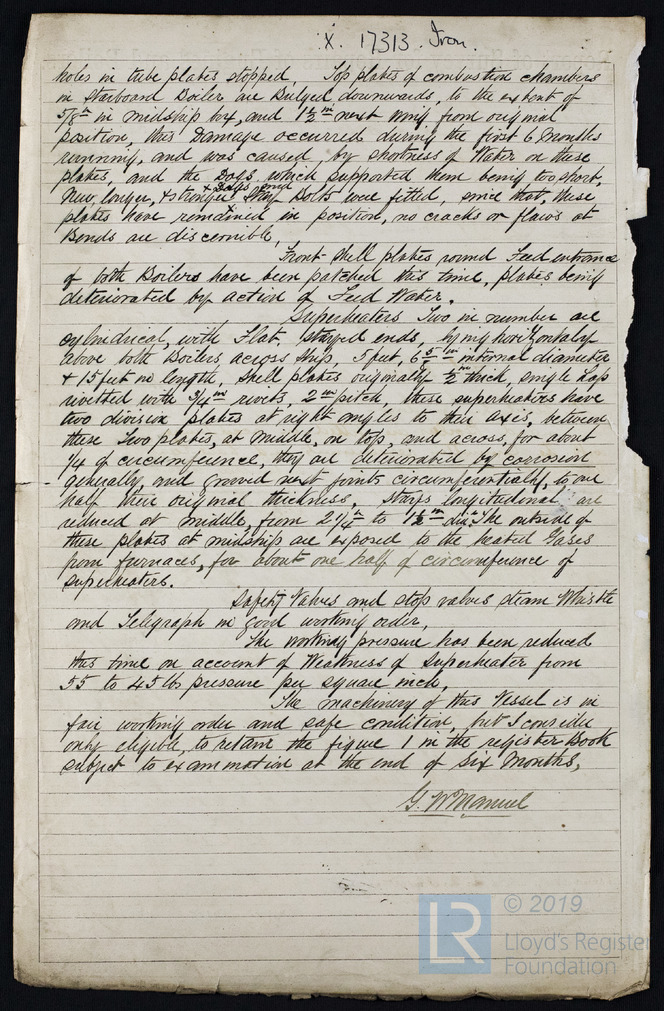 X. 17313. Iron.
holes in tube plates stopped. Top plates of combustion chambers
in Starboard Boiler are Bulged downwards, to the extent of
5/8 in in midship box, and 1 1/2 in next wing from original
position, this Damage occurred during the first 6 Months
running, and was caused, by shortness of Water on these
plates, and the Dogs which supported them being too short,
New, longer, & stronger Dogs and Stay Bolts were fitted, since that, these
plates have remained in position, no cracks or flaws at
Bends are discernible,
Front shell plates round Feed entrance
of both Boilers have been patched this time, plates being
deteriorated by action of Feed Water.
Superheaters Two in number are
cylindrical, with Flat, stayed ends, lying horizontaly
above both Boilers across ship, 5 feet, 6 5/8 in internal diameter
& 15 feet in length, shell plates originally 1/2 in thick, single Lap
rivetted with 3/4 in rivits, 2 in pitch, these superheaters have
two division plates at right angles to their axis, between
these Two plates, at middle, on top, and across, for about
1/4 of circumference, they are deteriorated by corrosion
generally, and grooved next joints circumferentialy, to one
half their original thickness. Stays longitudional are
reduced at middle, from 2 1/4 in to 1 1/2 in dia. The outside of
these plates at midship are exposed to the heated Gases
from furnaces, for about one half of circumference of
superheaters.
Safety Valves and stop valves steam Whistle
and Telegraph in good working order,
The working pressure has been reduced
this time on account of Weakness of Superheater from
55 to 45 lbs pressure per square inch,
The machinery of this Vessel is in
fair working order and safe condition, but I consider
only eligible, to retain the figure 1 in the register Book
subject to examination at the end of six Months,
G. W Manuel
© 2019
LR
Lloyd's Register
Foundation